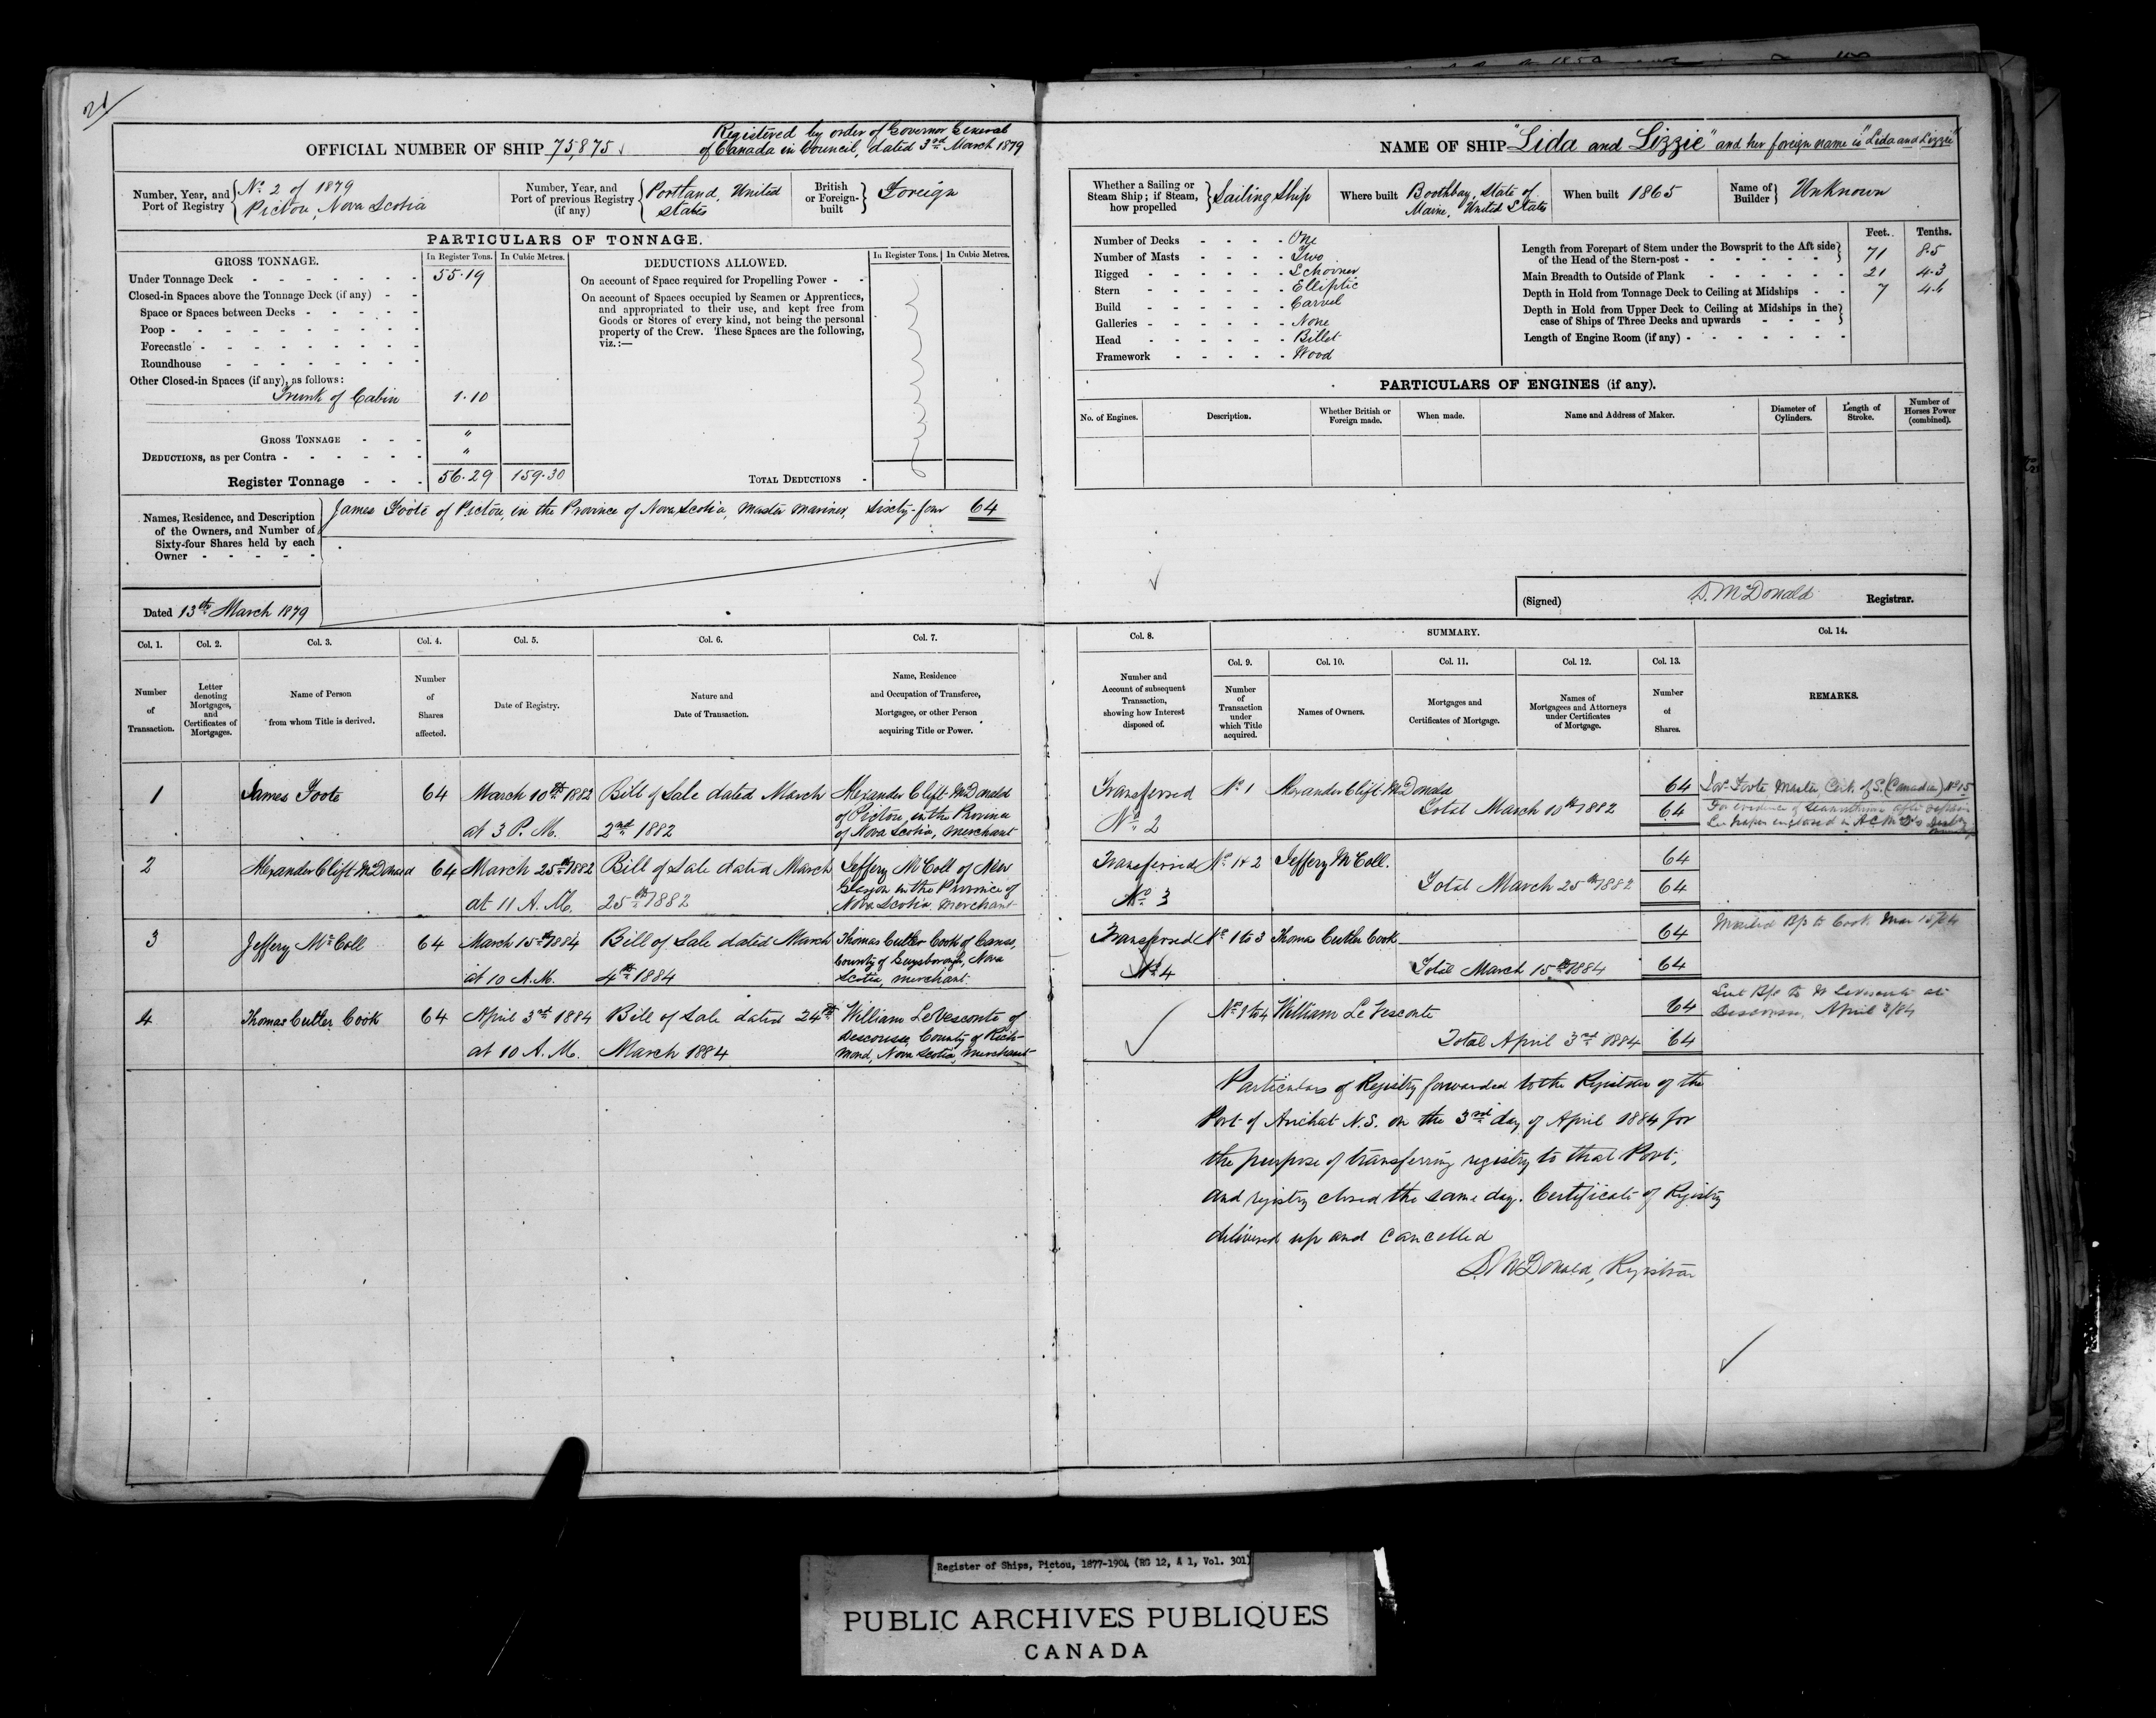 21
OFFICIAL NUMBER OF SHIP 75,875
Registered by order of Governor General
of Canada in Council, dated 3rd March 1879
Number, Year, and Port of Registry
No. 2 of 1879
Pictou, Nova Scotia
Number, Year, and Port of previous Registry (if any)
Portland, United States
British or Foreign-built
Foreign
PARTICULARS OF TONNAGE.
GROSS TONNAGE.
In Register Tons.
In Cubic Metres.
DEDUCTIONS ALLOWED.
In Register Tons.
In Cubic Metres.
Under Tonnage Deck - 55.19
Closed-in Spaces above the Tonnage Deck (if any) -
Space or Spaces between Decks -
Poop -
Forecastle -
Roundhouse -
Other Closed-in Spaces (if any), as follows:
Trunk of Cabin 1.10
GROSS TONNAGE - "
DEDUCTIONS, as per Contra - "
Register Tonnage - 56.29 159.30
On account of Space required for Propelling Power -
On account of Spaces occupied by Seamen or Apprentices,
and appropriated to their use, and kept free from
Goods or Stores of every kind, not being the personal
property of the Crew. These Spaces are the following,
viz.:—
TOTAL DEDUCTIONS -
Names, Residence, and Description
of the Owners, and Number of
Sixty-four Shares held by each
Owner -
James Foote of Pictou, in the Province of Nova Scotia, Master Mariner, Sixty-four 64
Dated 13th March 1879
Col. 1. Col. 2. Col. 3. Col. 4. Col. 5. Col. 6. Col. 7.
Number of Transaction.
Letter denoting Mortgages, and Certificates of Mortgages.
Name of Person from whom Title is derived.
Number of Shares affected.
Date of Registry.
Nature and Date of Transaction.
Name, Residence and Occupation of Transferee, Mortgagee, or other Person acquiring Title or Power.
1 James Foote 64 March 10th 1882 Bill of Sale dated March Alexander Clift McDonald
at 3 P. M. 2nd 1882 of Pictou, in the Province
of Nova Scotia, Merchant
2 Alexander Clift McDonald 64 March 25th 1882 Bill of Sale dated March Jeffery McColl of New
at 11 A. M. 25th 1882 Glasgow in the Province of
Nova Scotia. Merchant
3 Jeffery McColl 64 March 15th 1884 Bill of Sale dated March Thomas Cutler Cook of Canso,
at 10 A.M. 4th 1884 County of Guysborough, Nova
Scotia, Merchant.
4 Thomas Cutler Cook 64 April 3rd 1884 Bill of Sale dated 24th William LeVesconte of
at 10 A. M. March 1884 Descousse, County of Rich-
mond, Nova Scotia, Merchant
NAME OF SHIP "Lida and Lizzie" and her foreign name is "Lida and Lizzie"
Whether a Sailing or Steam Ship; if Steam, how propelled
Sailing Ship
Where built
Boothbay, State of Maine, United States
When built 1865
Name of Builder
Unknown
Number of Decks - One
Number of Masts - Two
Rigged - Schooner
Stern - Elliptic
Build - Carvel
Galleries - None
Head - Billet
Framework - Wood
Feet. Tenths.
Length from Forepart of Stem under the Bowsprit to the Aft side
of the Head of the Stern-post - 71 8.5
Main Breadth to Outside of Plank - 21 4.3
Depth in Hold from Tonnage Deck to Ceiling at Midships - 7
Depth in Hold from Upper Deck to Ceiling at Midships in the
case of Ships of Three Decks and upwards -
Length of Engine Room (if any) -
PARTICULARS OF ENGINES (if any).
No. of Engines.
Description.
Whether British or Foreign made.
When made.
Name and Address of Maker.
Diameter of Cylinders.
Length of Stroke.
Number of Horses Power (combined).
(Signed) D. McDonald Registrar.
Col. 8. SUMMARY. Col. 14.
Col. 9. Col. 10. Col. 11. Col. 12. Col. 13.
Number and Account of subsequent Transaction, showing how Interest disposed of.
Number of Transaction under which Title acquired.
Names of Owners.
Mortgages and Certificates of Mortgage.
Names of Mortgagees and Attorneys under Certificates of Mortgage.
Number of Shares.
REMARKS.
Transferred No. 1 Alexander Clift McDonald 64 Foote Master Cert. of S. (Canadian) No. 15
No. 2 Total March 10th 1882 64 For evidence of
See paper enclosed in A C McD's
Transferred No. 1 & 2 Jeffery McColl. 64
No. 3 Total March 25th 1882 64
Transferred No. 1 to 3 Thomas Cutler Cook 64 Mailed B/S to Cook Mar 15/84
No. 4 Total March 15th 1884 64
No. 1 to 4 William Le Vesconte 64 Sent B/S to W LeVesconte at
Total April 3rd 1884 64 Descousse, April 3/84
Particulars of Registry forwarded to the Registrar of the
Port of Arichat N.S. on the 3rd day of April 1884 for
the purpose of transferring registry to that Port,
and registry closed the same day. Certificate of Registry
delivered up and cancelled
D. McDonald, Registrar
Register of Ships, Pictou, 1877-1904 (RG 12, A 1, Vol. 301)
PUBLIC ARCHIVES PUBLIQUES
CANADA